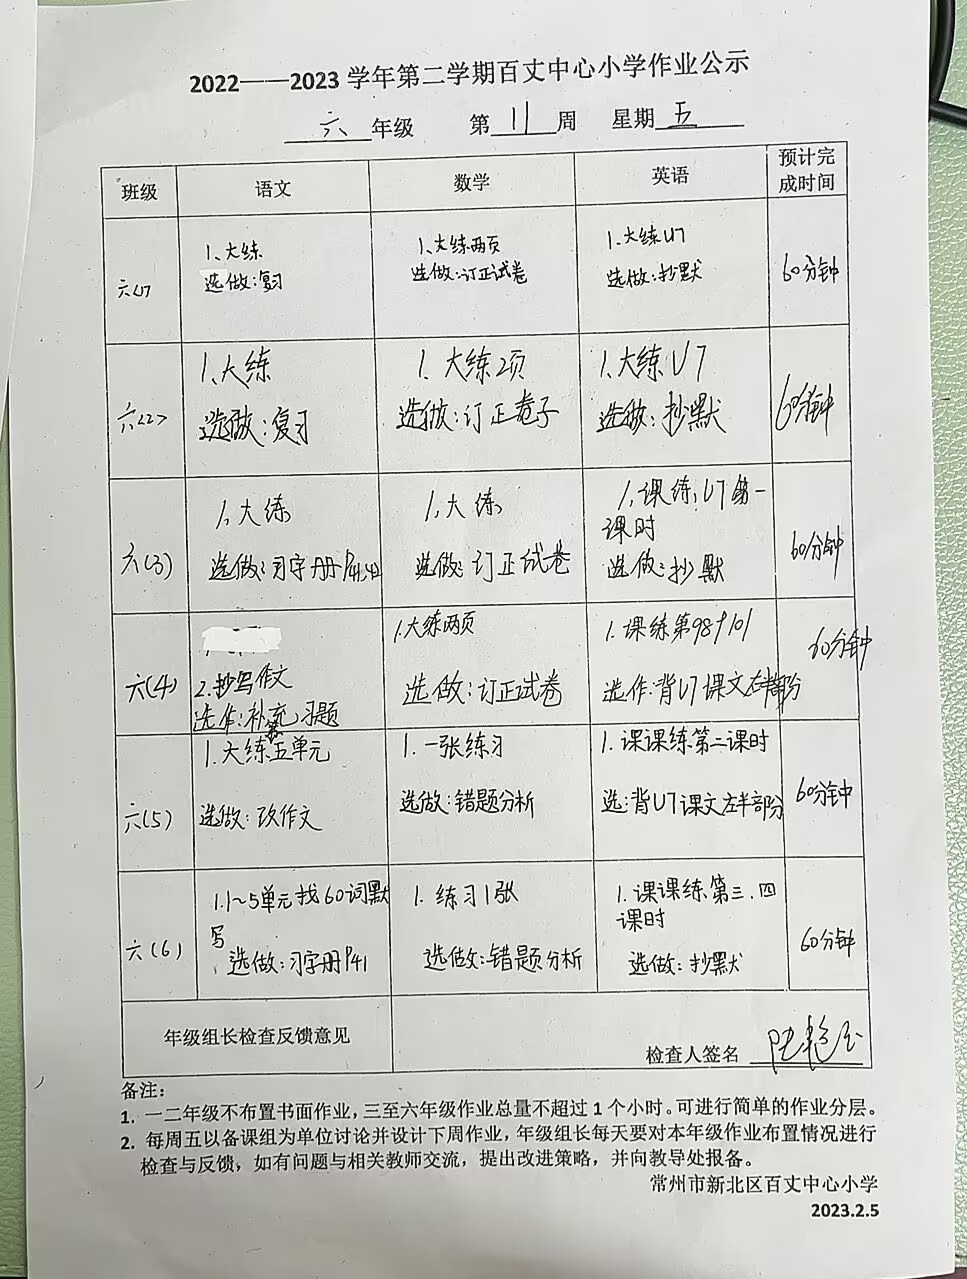 2022——2023 学年第二学期百丈中心小学作业公示
六 年级 第 11 周 星期 五
班级 语文 数学 英语 预计完成时间
六(1)
1.大练
选做:复习
1.大练两页
选做:订正试卷
1.大练U7
选做:抄默
60分钟
六(2)
1.大练
选做:复习
1.大练2页
选做:订正卷子
1.大练U7
选做:抄默
60分钟
六(3)
1.大练
选做:习字册P41,42
1.大练
选做:订正试卷
1.课练:U7第一
课时
选做:抄默
60分钟
六(4)
2.抄写作文
选作:补充习题
1.大练两页
选做:订正试卷
1.课练第98,101
选作:背U7课文左半部分
60分钟
六(5)
1.大练第五单元
选做:改作文
1.一张练习
选做:错题分析
1.课课练第二课时
选:背U7课文左半部分
60分钟
六(6)
1.1~5单元找60词默
写
选做:习字册P41
1.练习1张
选做:错题分析
1.课课练第三.四
课时
选做:抄默
60分钟
年级组长检查反馈意见
检查人签名
备注:
1. 一二年级不布置书面作业,三至六年级作业总量不超过 1 个小时。可进行简单的作业分层。
2. 每周五以备课组为单位讨论并设计下周作业,年级组长每天要对本年级作业布置情况进行
检查与反馈,如有问题与相关教师交流,提出改进策略,并向教导处报备。
常州市新北区百丈中心小学
2023.2.5